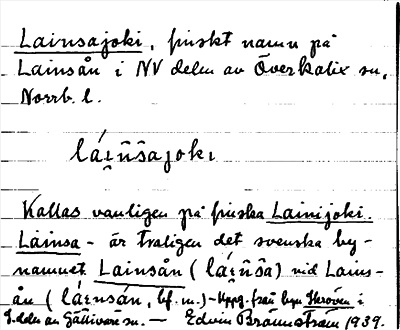 Lainsajoki, finskt namn på
Lainsån i NV delen av Överkalix sn,
Norrb. l.
láɪn̂s̑ajokɪ
Kallas vanligen på finska Lainijoki.
Lainsa - är troligen det svenska by-
namnet Lainsån (láɪn̂s̑a) vid Lains-
ån (láɪnsán, bf. m.) - Uppg. från byn Skröven i
S. delen av Gällivare sn. — Edvin Brännström 1939.